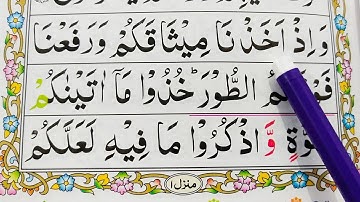 وَاِذْ اَخَذْنَا مِيْثَاقَكُمْ وَرَفَعْنَا
الطُّوْرَ ؕ خُذُوْا مَاۤ اٰتَيْنٰكُمْ
وَّ اذْكُرُوْا مَا فِيْهِ لَعَلَّكُمْ
منزل ١